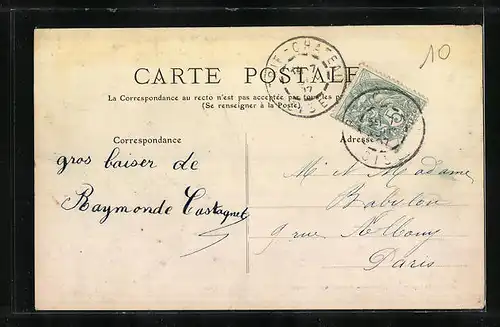 10
CARTE POSTALE
La Correspondance au recto n'est pas acceptée par tous les
(Se renseigner à la Poste)
Correspondance
Adresse
gros baiser de
Raymonde Castagnet
M. et Madame
Babylon
9 rue Albouy
Paris